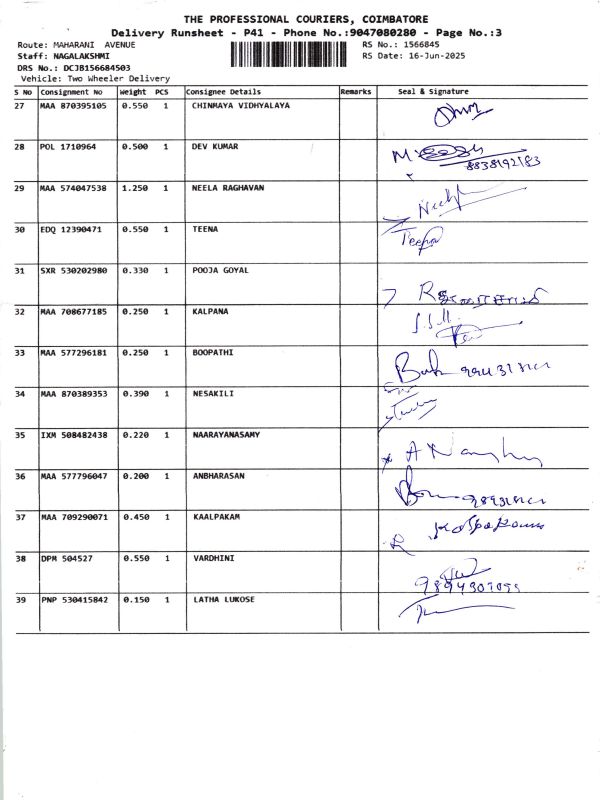 THE PROFESSIONAL COURIERS, COIMBATORE
Delivery Runsheet - P41 - Phone No.:9047080280 - Page No.:3
Route: MAHARANI AVENUE RS No.: 1566845
Staff: NAGALAKSHMI RS Date: 16-Jun-2025
DRS No.: DCJB156684503
Vehicle: Two Wheeler Delivery
S No Consignment No Weight PCS Consignee Details Remarks Seal & Signature
27 MAA 870395105 0.550 1 CHINMAYA VIDHYALAYA
28 POL 1710964 0.500 1 DEV KUMAR
8838192183
29 MAA 574047538 1.250 1 NEELA RAGHAVAN
30 EDQ 12390471 0.550 1 TEENA Teena
31 SXR 530202980 0.330 1 POOJA GOYAL
32 MAA 708677185 0.250 1 KALPANA
33 MAA 577296181 0.250 1 BOOPATHI
34 MAA 870389353 0.390 1 NESAKILI
35 IXM 508482438 0.220 1 NAARAYANASAMY
36 MAA 577796047 0.200 1 ANBHARASAN
37 MAA 709290071 0.450 1 KAALPAKAM
38 DPM 504527 0.550 1 VARDHINI
39 PNP 530415842 0.150 1 LATHA LUKOSE